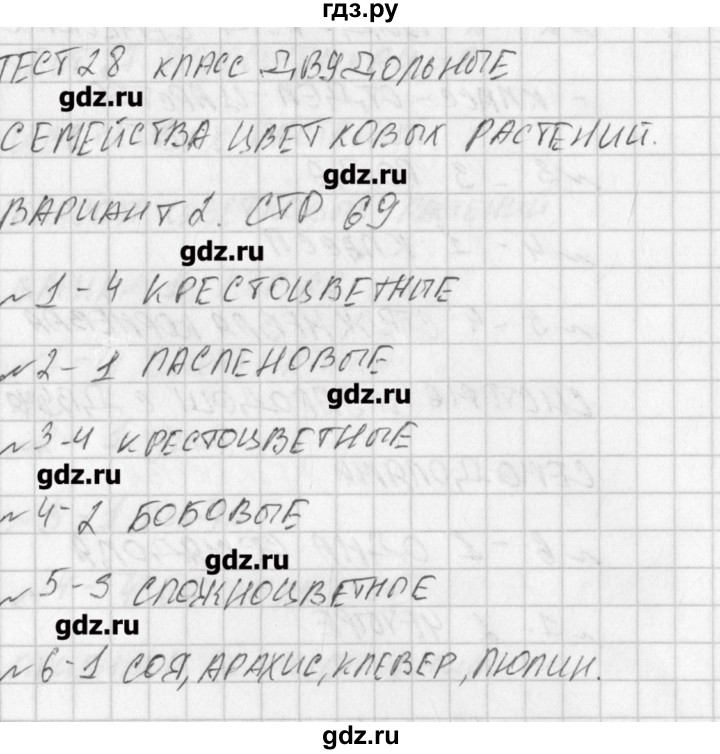 гдз.ру
ТЕСТ 28 КЛАСС ДВУДОЛЬНЫЕ
gdz.ru
СЕМЕЙСТВА ЦВЕТКОВЫХ РАСТЕНИЙ.
gdz.ru
ВАРИАНТ 2. СТР 69
gdz.ru
№ 1-4 КРЕСТОЦВЕТНЫЕ
№ 2-1 ПАСЛЕНОВЫЕ
gdz.ru
№ 3-4 КРЕСТОЦВЕТНЫЕ
gdz.ru
№ 4-2 БОБОВЫЕ
gdz.ru
№ 5-3 СЛОЖНОЦВЕТНЫЕ
gdz.ru
№ 6-1 СОЯ, АРАХИС, КЛЕВЕР, ЛЮПИН.
gdz.ru